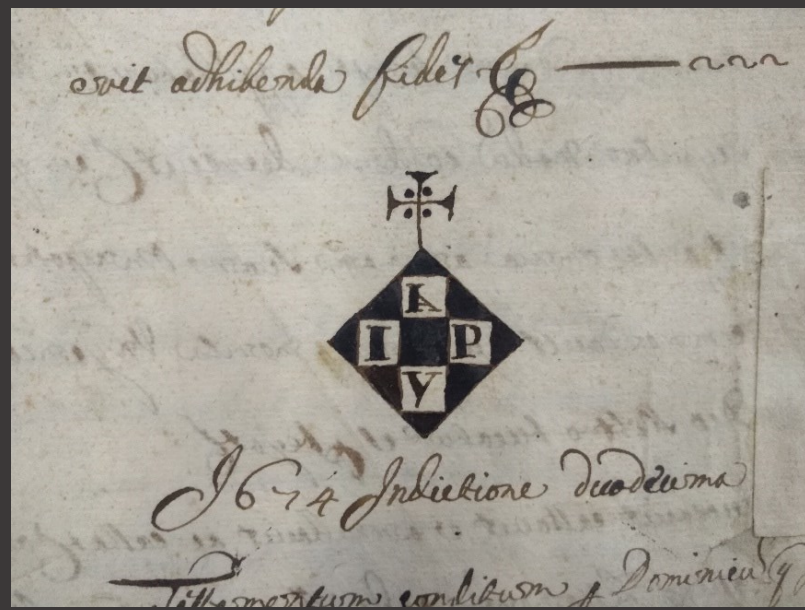 erit adhibenda fides
A
I P
V
1674 Indictione duodecima
Testamentum conditum p Dominicu